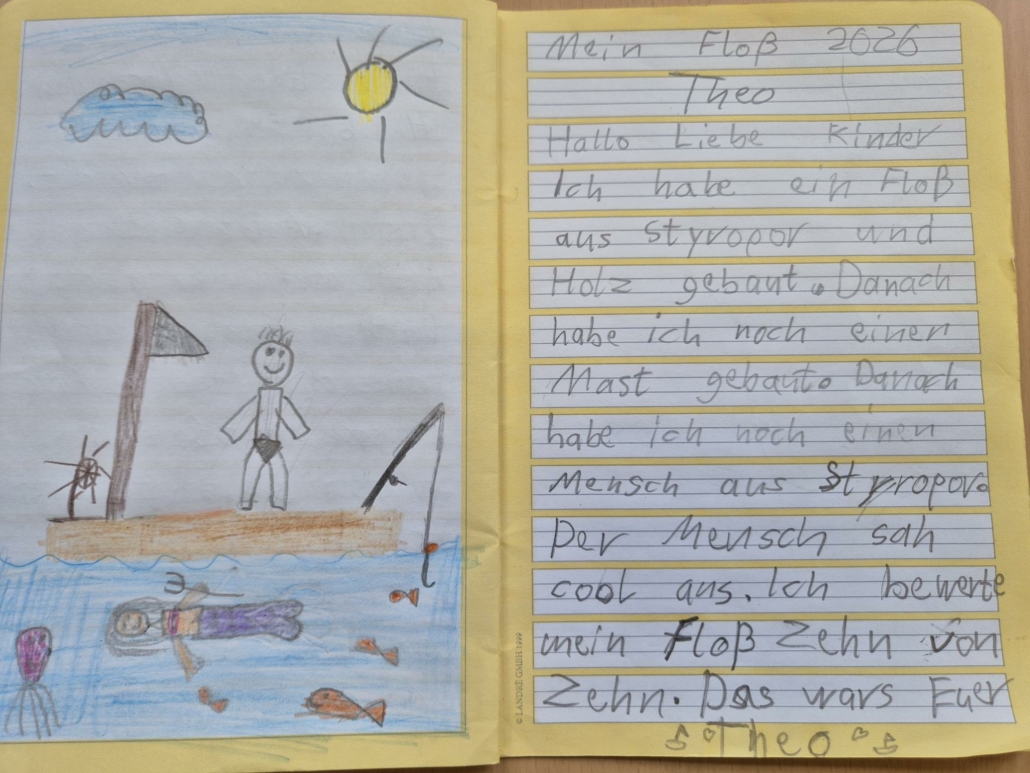 Mein Floß 2026
Theo
Hallo Liebe Kinder
Ich habe ein Floß
aus Styropor und
Holz gebaut. Danach
habe ich noch einen
Mast gebaut. Danach
habe ich noch einen
Mensch aus Styropor.
Der Mensch sah
cool aus. Ich bewerte
mein Floß Zehn von
Zehn. Das wars Euer
Theo
© LANDRÉ GMBH 1999